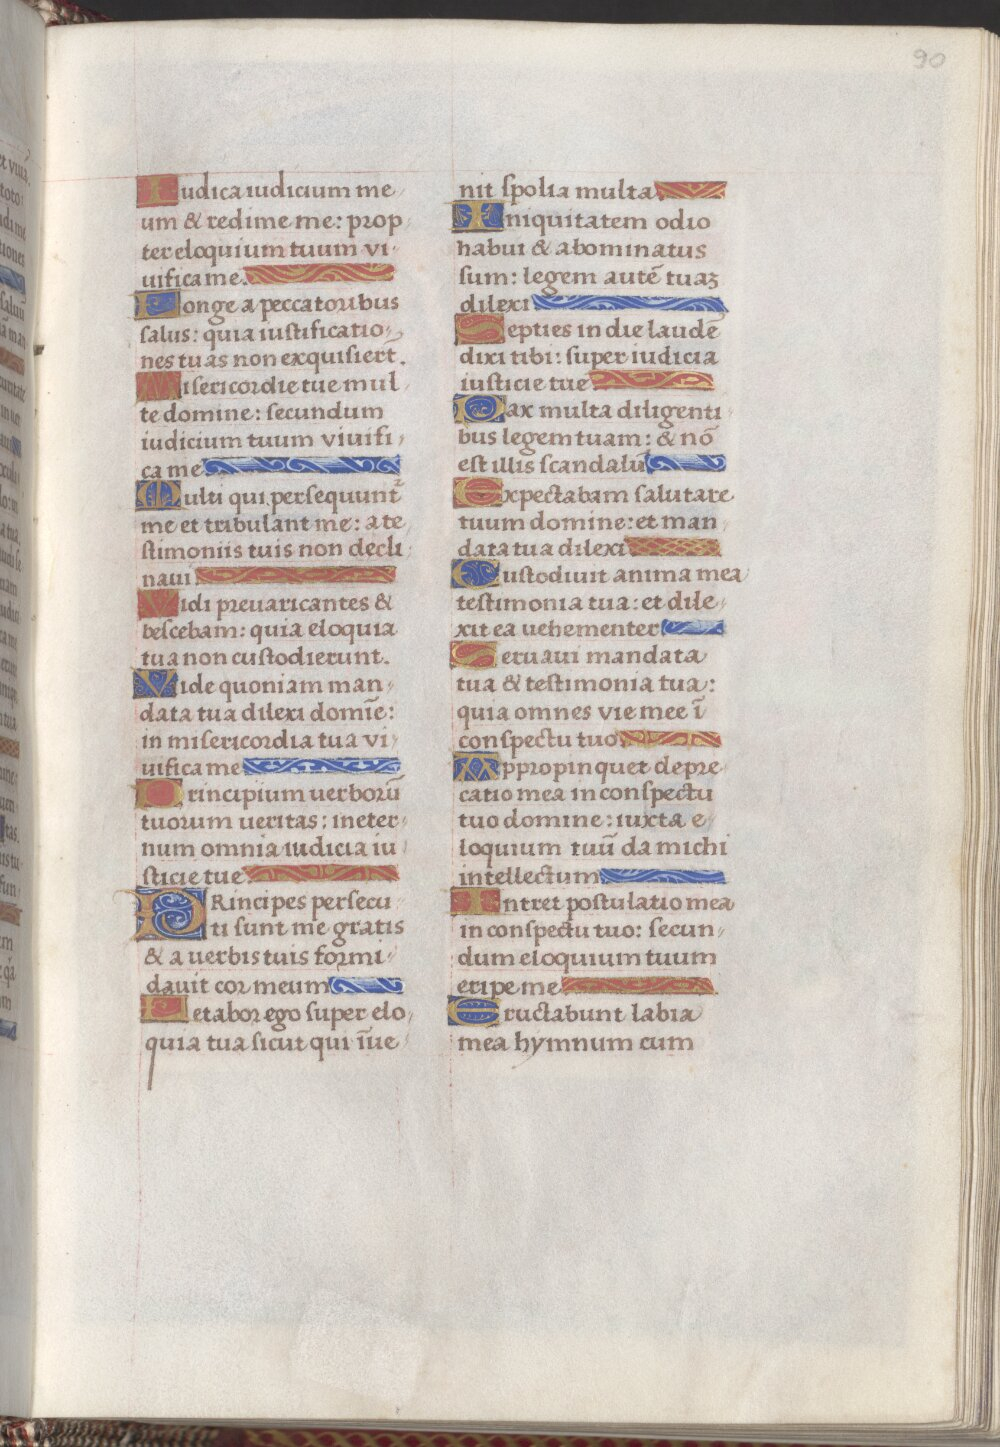 90
Iudica iudicium me
um & redime me: prop
ter eloquium tuum vi
uifica me.
Longe a peccatoribus
salus: quia iustificatio
nes tuas non exquisiert̄.
Misericordie tue mul
te domine: secundum
iudicium tuum viuifi
ca me
Multi qui persequunt̄
me et tribulant me: a te
stimoniis tuis non decli
naui
Vidi preuaricantes &
bescebam: quia eloquia
tua non custodierunt.
Vide quoniam man
data tua dilexi domīe:
in misericordia tua vi
uifica me
Principium uerborū
tuorum ueritas: in eter
num omnia iudicia iu
sticie tue.
PRincipes persecu
ti sunt me gratis
& a uerbis tuis formi
dauit cor meum
Letabor ego super elo
quia tua sicut qui īue
nit spolia multa
Iniquitatem odio
habui & abominatus
sum: legem autē tuaꝫ
dilexi
Septies in die laudē
dixi tibi: super iudicia
iusticie tue
Pax multa diligenti
bus legem tuam: & nō
est illis scandalū
Expectabam salutare
tuum domine: et man
data tua dilexi
Custodiuit anima mea
testimonia tua: et dile
xit ea uehementer
Seruaui mandata
tua & testimonia tua:
quia omnes vie mee ī
conspectu tuo
Appropinquet depre
catio mea in conspectu
tuo domine: iuxta e
loquium tuū da michi
intellectum
Intret postulatio mea
in conspectu tuo: secun
dum eloquium tuum
eripe me
Eructabunt labia
mea hymnum cum